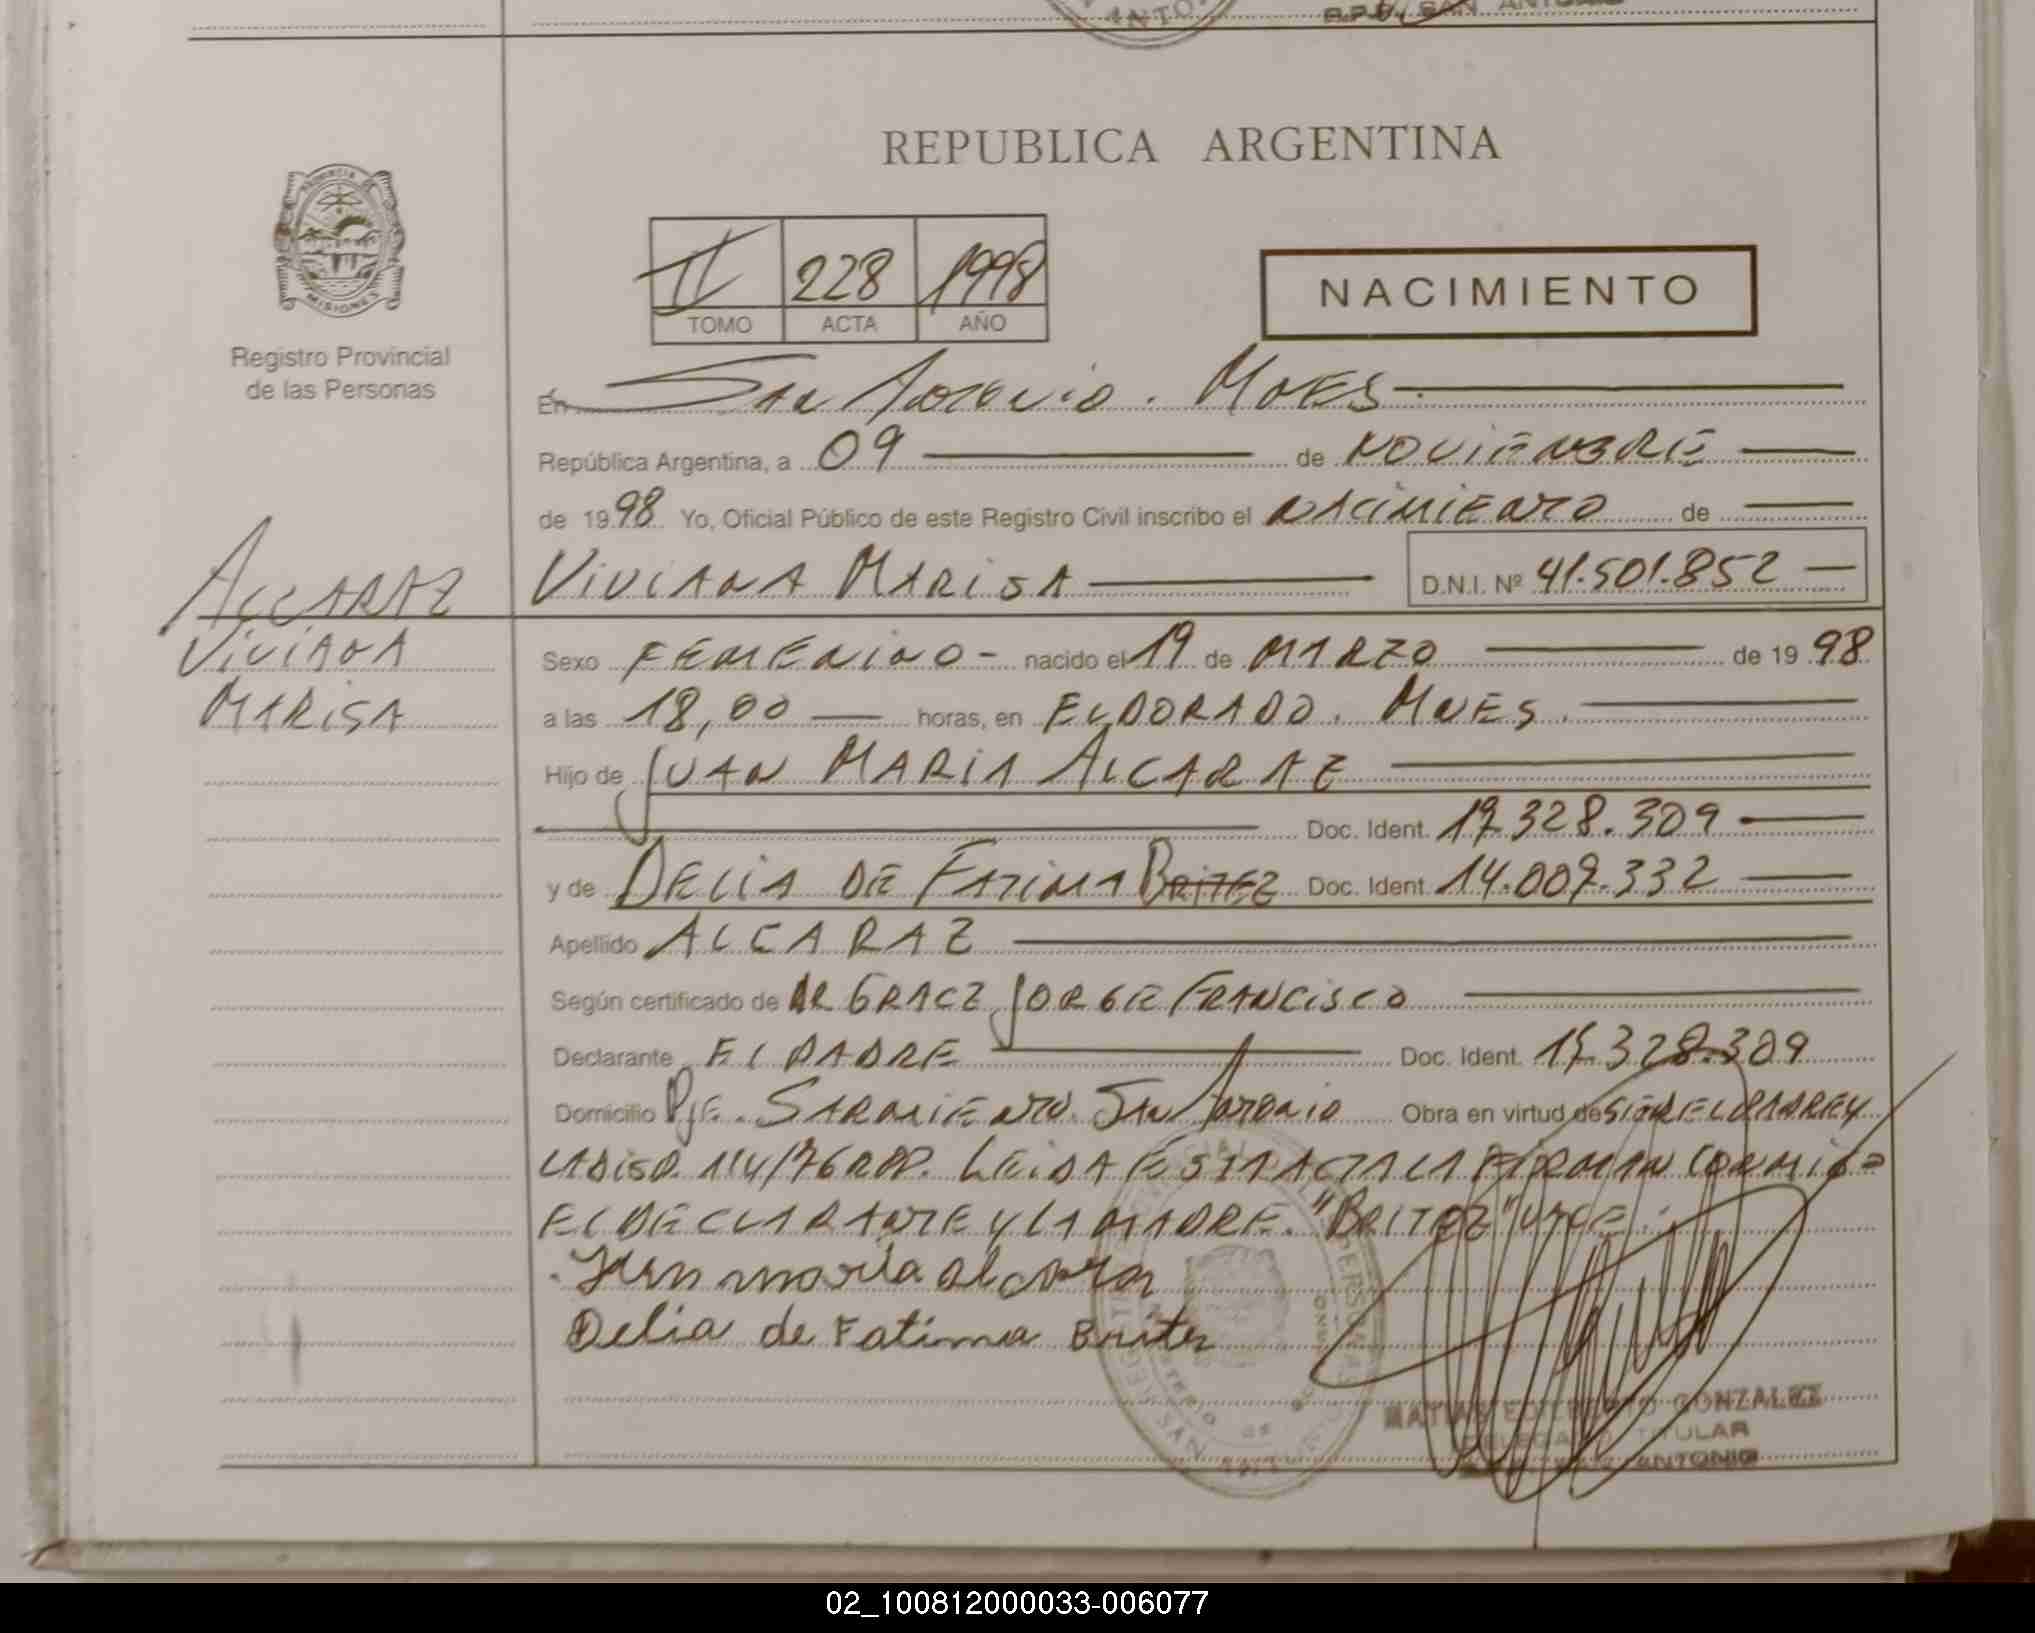 R.P.P. SAN ANTONIO
REPUBLICA ARGENTINA
PROVINCIA DE
MISIONES
Registro Provincial
de las Personas
II 228 1998
TOMO ACTA AÑO
NACIMIENTO
En San Antonio. Mnes
República Argentina, a 09 de NOVIENBRE
de 1998 Yo, Oficial Público de este Registro Civil inscribo el NACIMIENTO de
VIVIANA MARISA D.N.I. Nº 41.501.852
ALCARAZ
VIVIANA
MARISA
Sexo FEMENINO - nacido el 19 de MARZO de 1998
a las 18,00 horas, en ELDORADO. MNES.
Hijo de JUAN MARIA ALCARAZ
Doc. Ident. 17.328.309
y de DELIA DE FATIMA BRITEZ Doc. Ident. 14.009.332
Apellido ALCARAZ
Según certificado de DR GRACZ JORGE FRANCISCO
Declarante EL PADRE Doc. Ident. 17.328.309
Domicilio Pje. SARMIENTO. San Antonio Obra en virtud de SER EL PADRE Y
LA DISP. 114/76 RPP. LEIDA ESTA ACTA LA FIRMAN CONMIGO
EL DECLARANTE Y LA MADRE. "BRITEZ" VALE.
Juan maria alcaraz
Delia de Fatima Britez
GONZALEZ
DELEGADO TITULAR
SAN ANTONIO
02_100812000033-006077